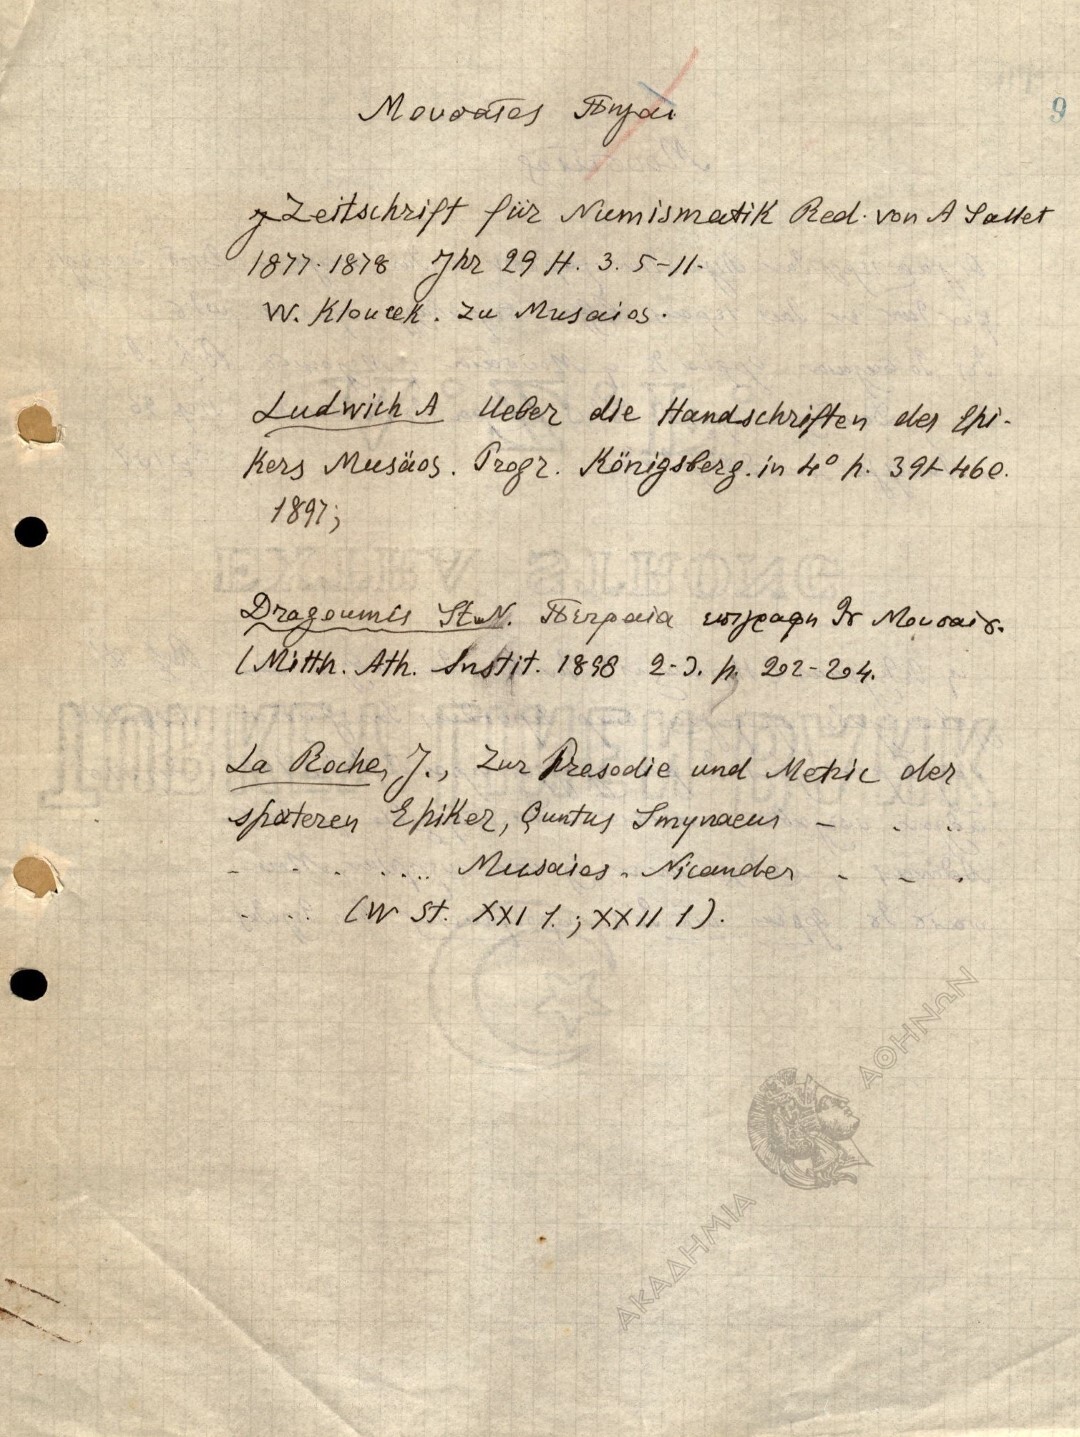 9
Μουσαῖος Πηγαι
Zeitschrift für Numismatik Red. von A Sallet
1877-1878 Jhr 29 H. 3. 5-11.
W. Kloucek. Zu Musaios.
Ludwich A Ueber die Handschriften des Epi-
kers Musäos. Progr. Königsberg. in 4° p. 39+46e.
1897;
Dragoumis St. N. Πειραια επιγραφη Μουσαιȣ.
(Mitth. Ath. Instit. 1898 2-3. p. 202-204.
La Roche, J., Zur Prosodie und Metric der
späteren Epiker, Quntus Smynaeus - . .
- . . . .... Musaios. Nicander - - .
- . . . (W St. XXI 1. ; XXII 1).
ΑΚΑΔΗΜΙΑ ΑΘΗΝΩΝ